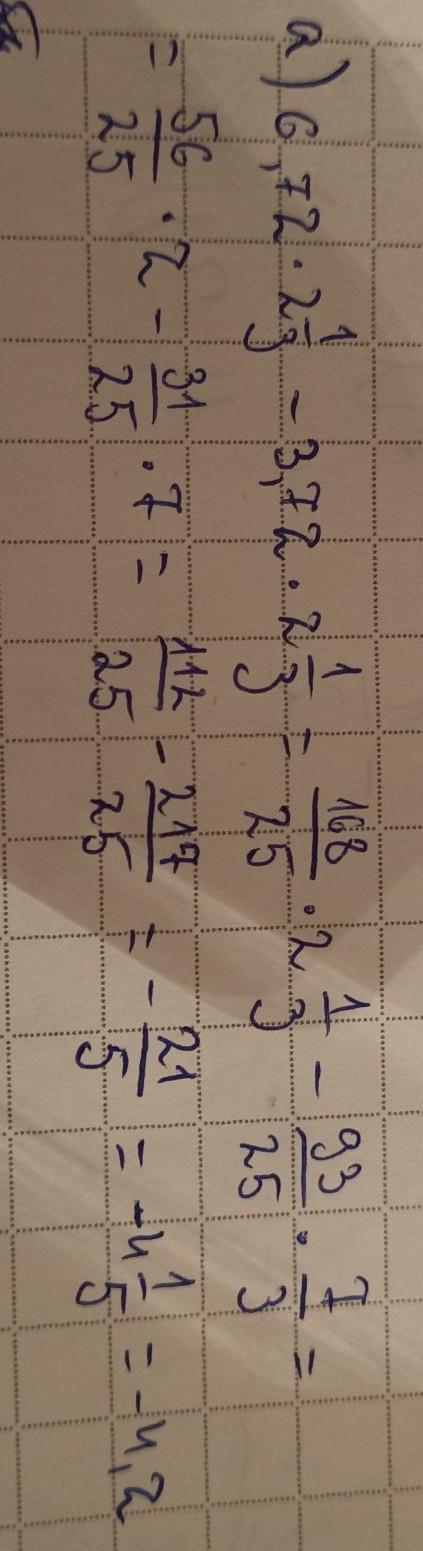 a) 6,72 · 2 1/3 - 3,72 · 2 1/3 = 168/25 · 2 1/3 - 93/25 · 7/3 =
= 56/25 · 2 - 31/25 · 7 = 112/25 - 217/25 = - 21/5 = -4 1/5 = -4,2